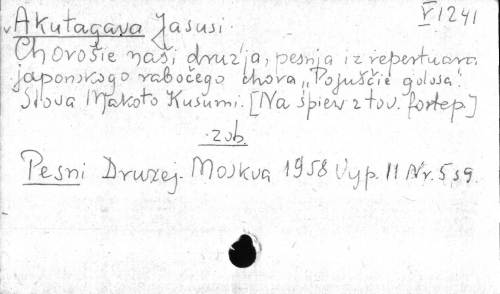 V 1241
Akutagava Jasusi.
Chorošie naši druz'ja, pesnja iz repertuara
japonskogo rabočego chora "Pojuščie golosa".
Slova Makoto Kusumi. [Na śpiew z tow. fortep.]
zob.
Pesni Druzej. Moskva 1958 Vyp. II Nr. 5 s 9.